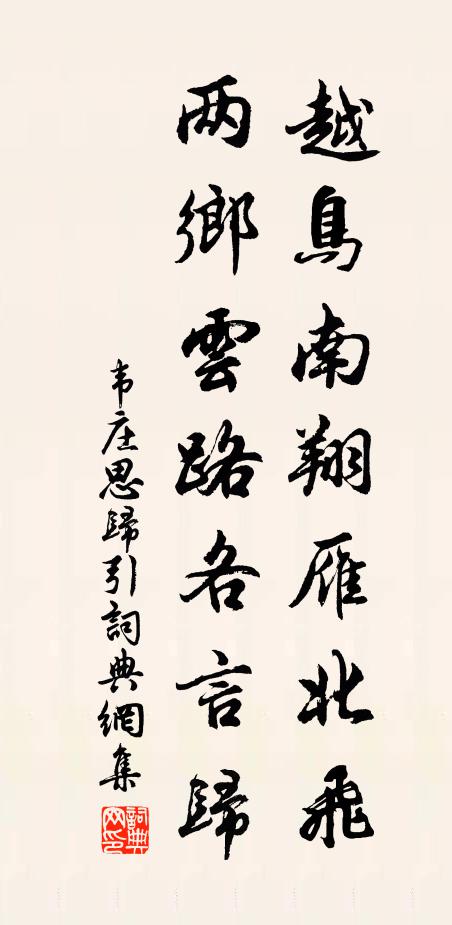 越鳥南翔雁北飛
两鄉雲路各言歸
韦庄思歸引詞典網集
詞典网印